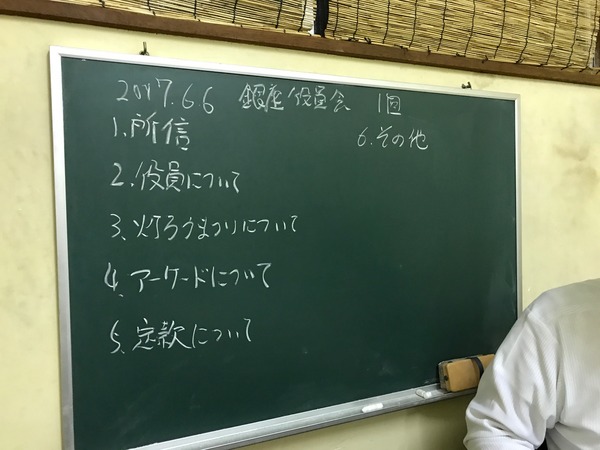 2017.6.6 銀座役員会 1回
1.所信
2.役員について
3.灯ろうまつりについて
4.アーケードについて
5.定款について
6.その他